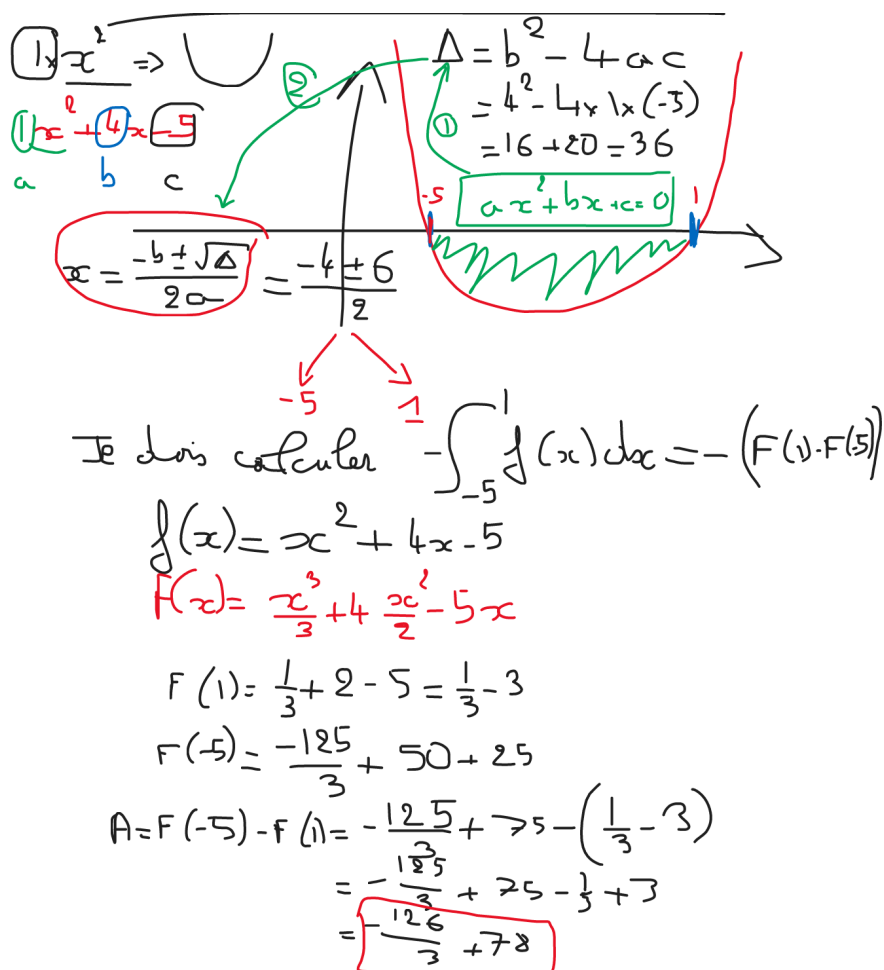 1×x² => ∪
1x² + 4x - 5
a b c
②
Δ = b² - 4ac
= 4² - 4×1×(-5)
= 16 + 20 = 36
①
ax² + bx + c = 0
-5 1
x = (-b ± √Δ)/2a = (-4 ± 6)/2
-5 1
Je dois calculer -∫₋₅¹ f(x)dx = -(F(1)-F(-5))
f(x) = x² + 4x - 5
F(x) = x³/3 + 4 x²/2 - 5x
F(1) = 1/3 + 2 - 5 = 1/3 - 3
F(-5) = -125/3 + 50 + 25
A = F(-5) - F(1) = -125/3 + 75 - (1/3 - 3)
= -125/3 + 75 - 1/3 + 3
= -126/3 + 78